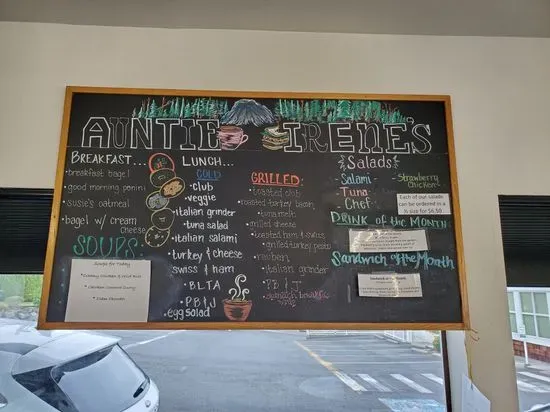 AUNTIE IRENE'S
BREAKFAST...
breakfast bagel
good morning panini
susie's oatmeal
bagel w/ cream cheese
SOUPS:
Soups for Today
LUNCH...
COLD
club
veggie
italian grinder
tuna salad
italian salami
turkey & cheese
swiss & ham
BLTA
PB & J
egg salad
GRILLED:
toasted club
roasted turkey bacon
tuna melt
grilled cheese
toasted ham & swiss
grilled turkey pesto
reuben
italian grinder
PB & J
Salads
Salami
Tuna
Chef
Strawberry Chicken
Each of our salads
can be ordered in a
½ size for $6.50
DRINK of the MONTH
SANDWICH of the MONTH